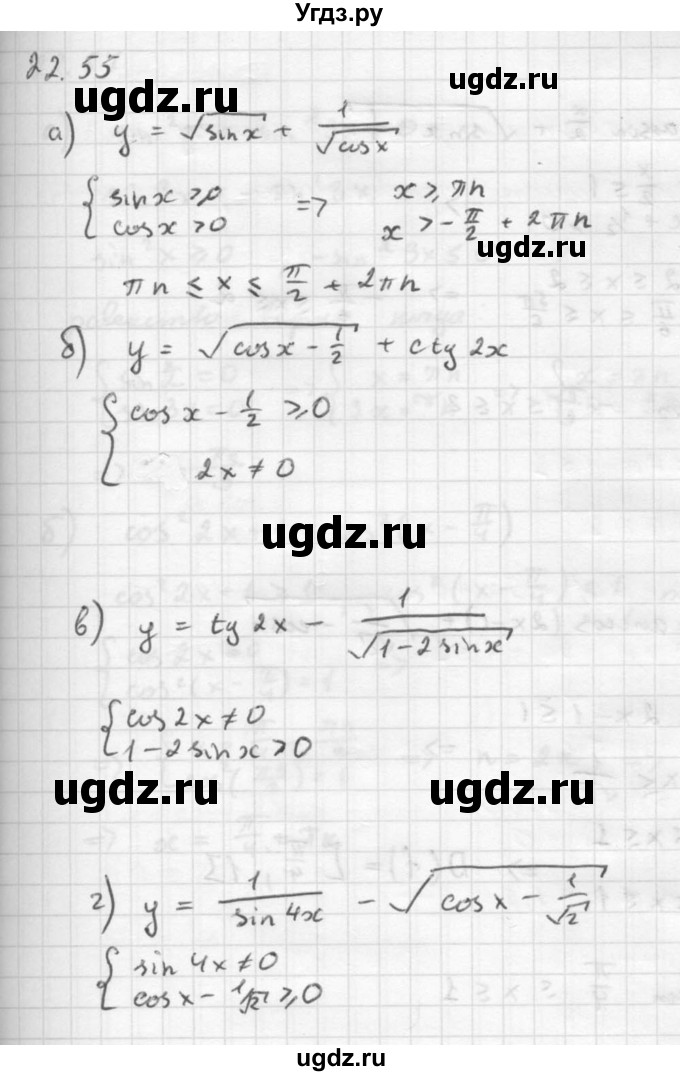 Угдз.ру
22.55
ugdz.ru ugdz.ru
а) y = √sinx + 1/√cosx
{ sinx ⩾ 0 => x ⩾ πn
cosx > 0 x > -π/2 + 2πn
ugdz.ru
πn ≤ x ≤ π/2 + 2πn
б) y = √(cosx - 1/2) + ctg 2x
{ cosx - 1/2 ⩾ 0
2x ≠ 0
ugdz.ru
в) y = tg 2x - 1/√(1-2sinx)
{ cos2x ≠ 0
1-2sinx > 0
ugdz.ru ugdz.ru
г) y = 1/sin4x - √(cosx - 1/√2)
{ sin 4x ≠ 0
cosx - 1/√2 ⩾ 0
ugdz.ru
ugdz.ru